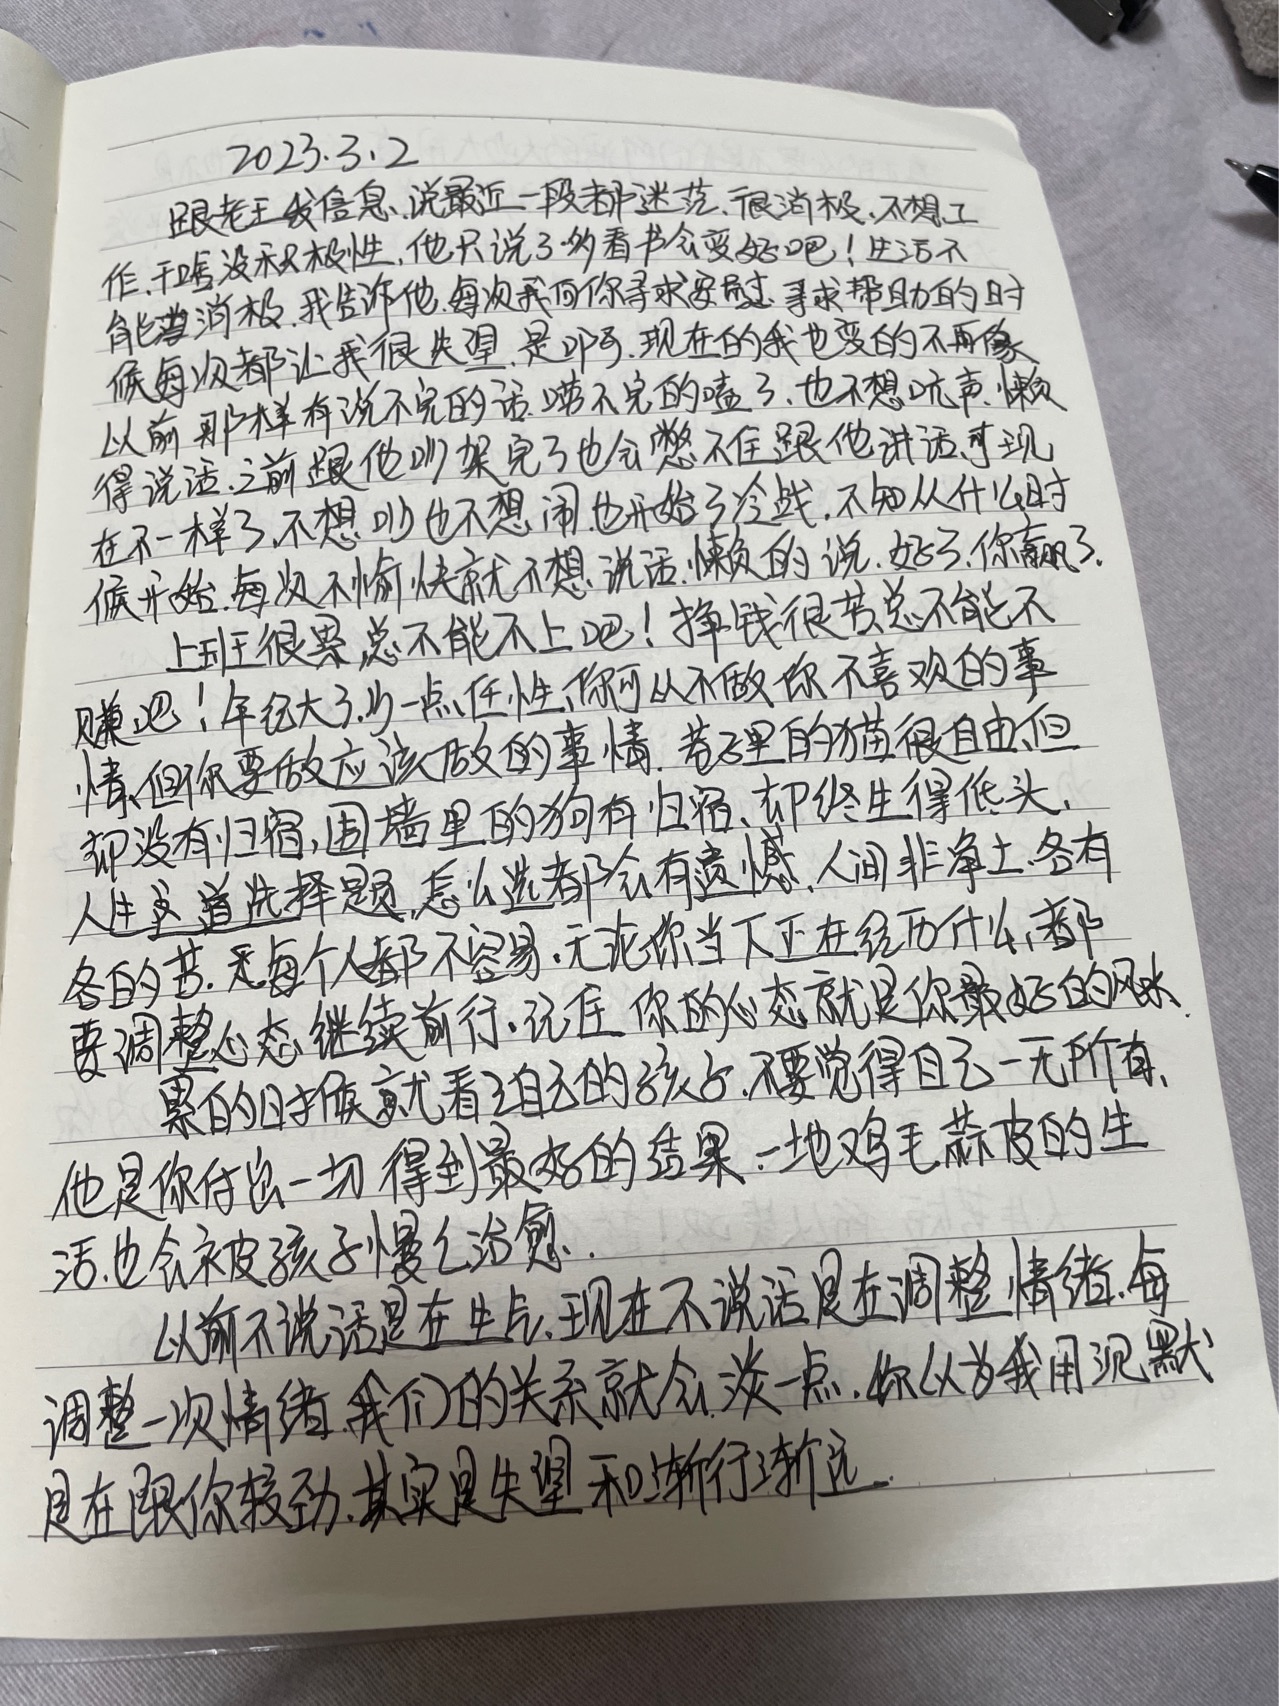 2023.3.2
跟老王发信息、说最近一段都迷茫、很消极、不想工
作、干啥没积极性、他只说了多看书会变好吧！生活不
能消极、我告诉他、每次我向你寻求安慰、寻求帮助的时
候每次都让我很失望、是啊、现在的我也变的不再像
以前那样有说不完的话、唠不完的嗑了、也不想吭声、懒
得说话、之前跟他吵架完了也会憋不住跟他讲话、可现
在不一样了、不想吵也不想闹、也开始了冷战、不知从什么时
候开始、每次不愉快就不想说话、懒的说、好了、你赢了、
上班很累、总不能不上吧！挣钱很苦、总不能不
赚吧！年纪大了、少一点任性、你可以不做你不喜欢的事
情、但你要做应该做的事情、巷子里的猫很自由、但
却没有归宿、围墙里的狗有归宿、却终生得低头、
人生这道选择题、怎么选都会有遗憾、人间非净土、各有
各的苦、每个人都不容易、无论你当下正在经历什么、都
要调整心态继续前行、记住你的心态就是你最好的风水、
累的时候就看看自己的孩子、不要觉得自己一无所有、
他是你付出一切得到最好的结果、一地鸡毛蒜皮的生
活、也会被孩子慢慢治愈、
以前不说话是在生气、现在不说话是在调整情绪、每
调整一次情绪、我们的关系就会淡一点、你以为我用沉默
是在跟你较劲、其实是失望和渐行渐远